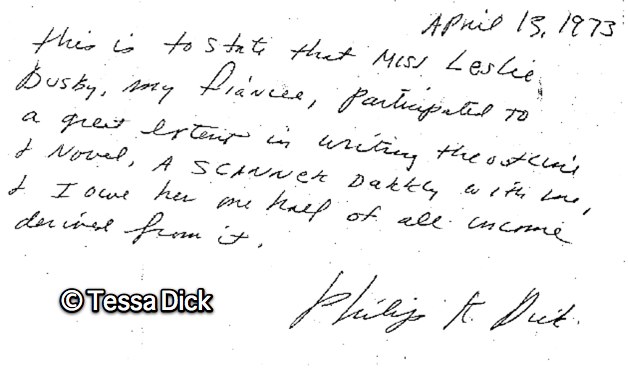 April 13, 1973
this is to state that Miss Leslie
Busby, my fiancee, participated to
a great extent in writing the outline
& Novel, A SCANNER DARKLY with me,
& I owe her one half of all income
derived from it.
Philip K. Dick
© Tessa Dick